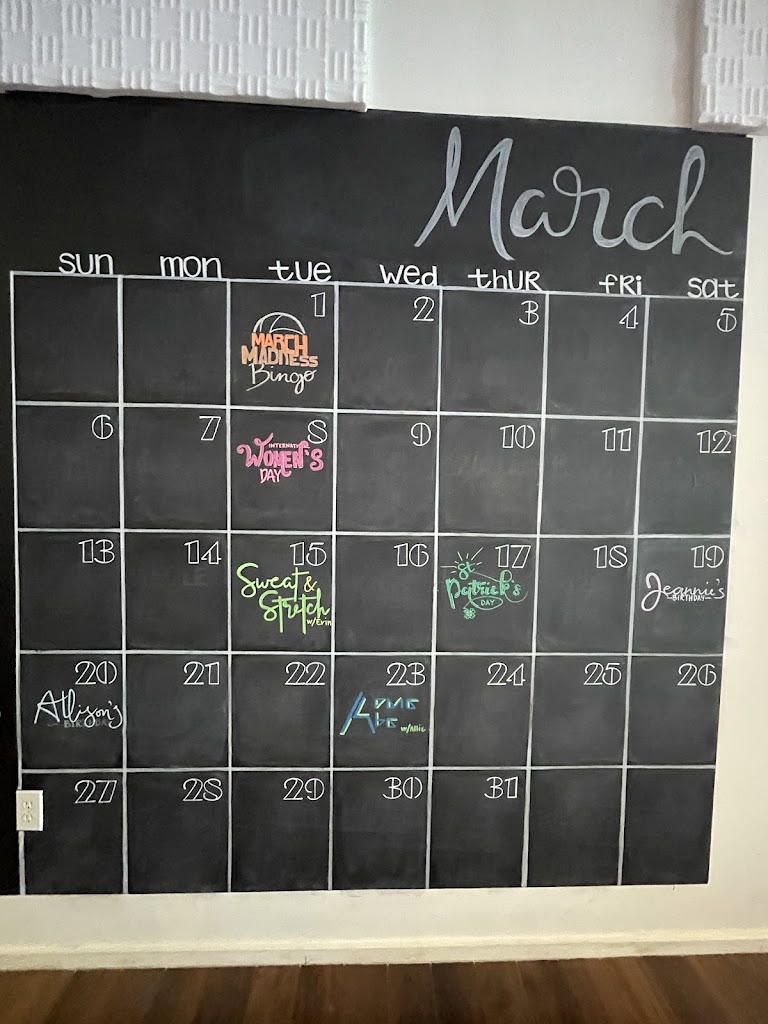 March
sun mon tue wed thur fri sat
1 2 3 4 5
MARCH
MADNESS
Bingo
6 7 8 9 10 11 12
WOMEN'S
DAY
13 14 15 16 17 18 19
Sweat &
Stretch
w/Erin
St
Patrick's
DAY
Jeannie's
BIRTHDAY
20 21 22 23 24 25 26
Allison's
BIRTHDAY
w/Allie
27 28 29 30 31